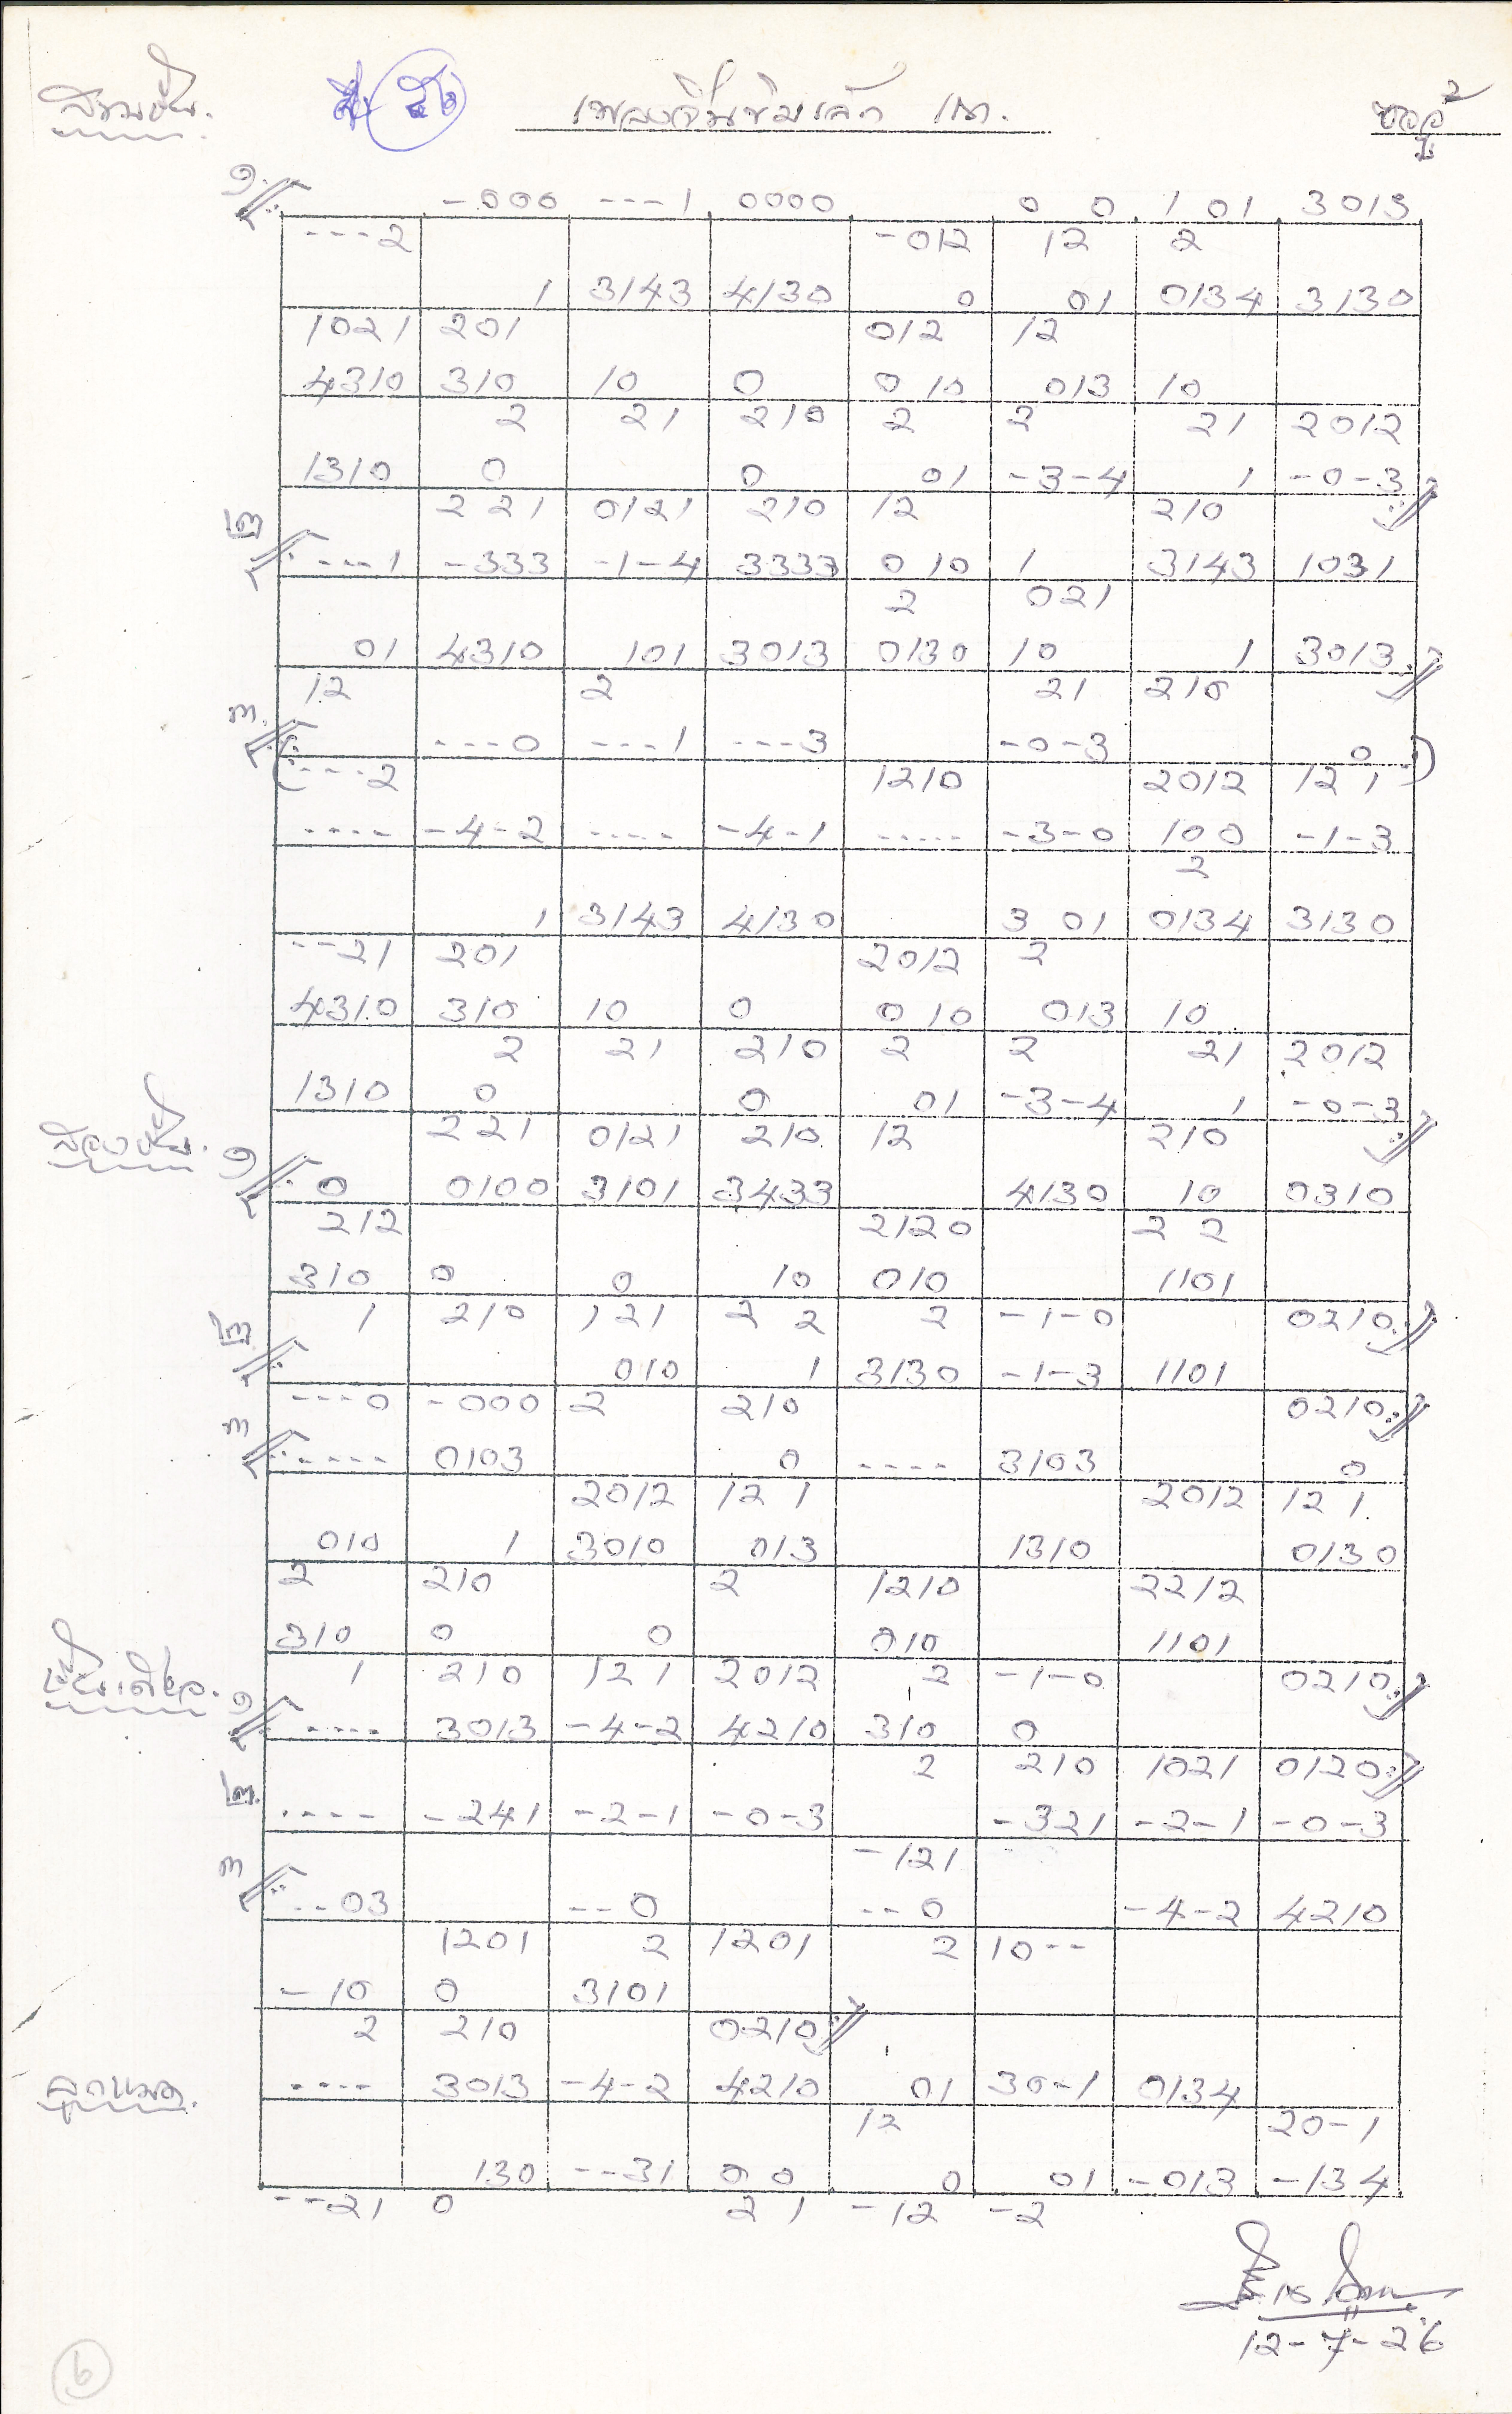 สามชั้น. เพลงจีนขิมเล็ก เถา. ซออู้ 2
๑ -000 ---1 0000 0 0 1 01 3013
---2 -012 12 2
1 3143 4130 0 01 0134 3130
1021 201 012 12
4310 310 10 0 0 10 013 10
2 21 210 2 2 21 2012
1310 0 0 01 -3-4 1 -0-3
2 21 0121 210 12 210
๒ ---1 -333 -1-4 3333 0 10 1 3143 1031
2 021
01 4310 101 3013 0130 10 1 3013
12 2 21 210
๓ ---0 ---1 ---3 -0-3 0
(---2 1210 2012 12 1 )
---- -4-2 ---- -4-1 ---- -3-0 100 -1-3
2
1 3143 4130 3 01 0134 3130
--21 201 2012 2
4310 310 10 0 0 10 013 10
2 21 210 2 2 21 2012
1310 0 0 01 -3-4 1 -0-3
สองชั้น. 2 21 0121 210 12 210
๑ 0 0100 3101 3433 4130 10 0310
212 2120 2 2
310 0 0 10 010 1101
1 210 121 2 2 2 -1-0 0210
๒ 010 1 3130 -1-3 1101
---0 -000 2 210 0210
๓ ---- 0103 0 ---- 3103 0
2012 12 1 2012 12 1
010 1 3010 013 1310 0130
2 210 2 1210 2212
310 0 0 010 1101
ชั้นเดียว. 1 210 12 1 2012 2 -1-0 0210
๑ ---- 3013 -4-2 4210 310 0
2 210 1021 0120
๒ ---- -241 -2-1 -0-3 -321 -2-1 -0-3
-121
๓ --03 --0 --0 -4-2 4210
1201 2 1201 2 10--
-10 0 3101
2 210 0210
ลูกหมด. ---- 3013 -4-2 4210 01 30-1 0134
12 20-1
130 --31 0 0 0 01 -013 -134
--21 0 2 1 -12 -2
12-7-26
6